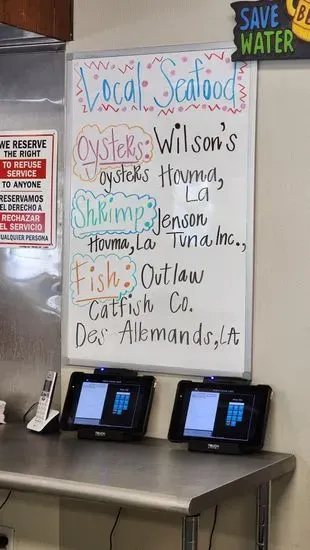 SAVE
WATER
Local Seafood
Oysters: Wilson's
oysters Houma,
La
Shrimp: Jenson
Houma, La Tuna Inc.,
Fish: Outlaw
Catfish Co.
Des Allemands, LA
WE RESERVE
THE RIGHT
TO REFUSE
SERVICE
TO ANYONE
RESERVAMOS
EL DERECHO A
RECHAZAR
EL SERVICIO
CUALQUIER PERSONA
TOUCH